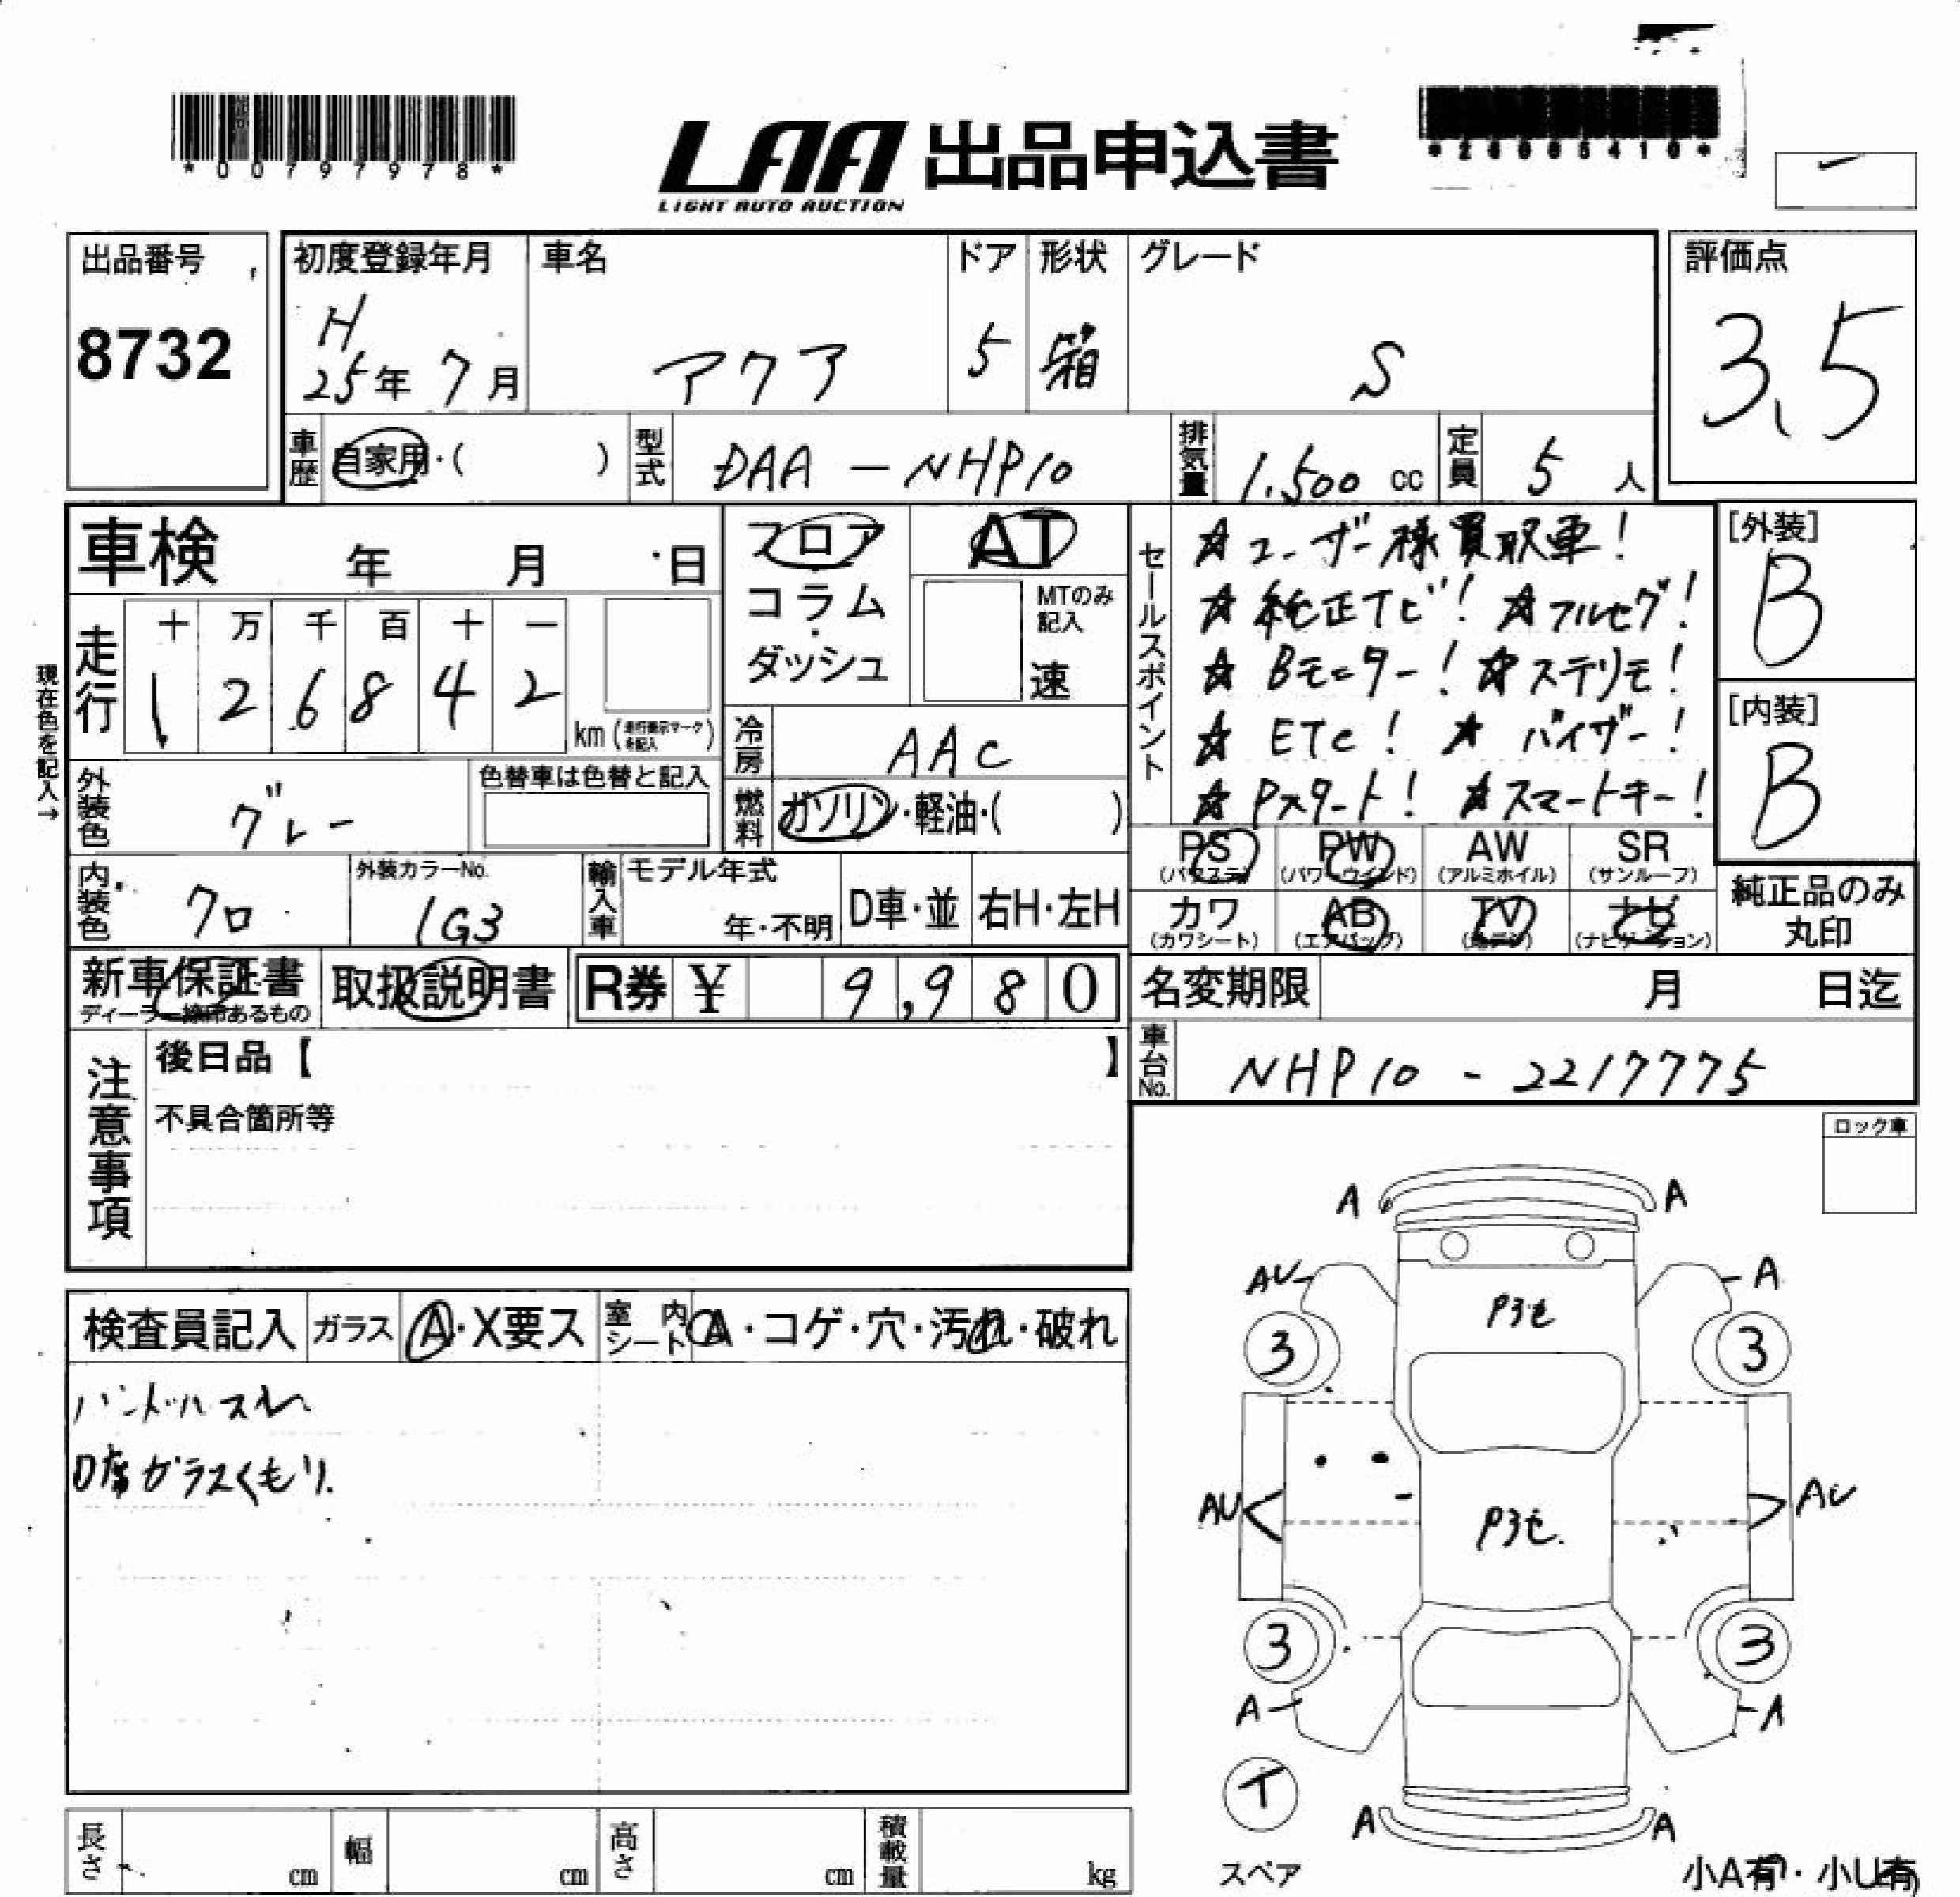 *00797978*
LAA 出品申込書
LIGHT AUTO AUCTION
*26005410*
出品番号
8732
初度登録年月
H
25年 7月
車名
アクア
ドア
5
形状
箱
グレード
S
評価点
3.5
車歴
自家用・( )
型式
DAA-NHP10
排気量
1.500 cc
定員
5 人
車検 年 月 日
走行
十 万 千 百 十 一
1 2 6 8 4 2
km (走行表示マークを記入)
現在色を記入→
外装色
グレー
色替車は色替と記入
内装色
クロ
外装カラーNo.
1G3
フロア
コラム
・
ダッシュ
AT
MTのみ
記入
速
冷房
AAC
燃料
ガソリン・軽油・( )
輸入車
モデル年式
年・不明
D車・並
右H・左H
セールスポイント
☆ユーザー様買取車!
☆純正TV! ☆フルセグ!
☆Bモニター! ☆ステリモ!
☆ETC! ☆バイザー!
☆Pスタート! ☆スマートキー!
[外装]
B
[内装]
B
PS
(パワステ)
PW
(パワーウインド)
AW
(アルミホイル)
SR
(サンルーフ)
カワ
(カワシート)
AB
(エアバッグ)
TV
(地デジ)
ナビ
(ナビゲーション)
純正品のみ
丸印
新車保証書
ディーラー捺印あるもの
取扱説明書
R券 ¥ 9,980
名変期限 月 日迄
車台No.
NHP10-2217775
注意事項
後日品【 】
不具合箇所等
ロック車
検査員記入
ガラス
A・X要ス
室内シート
A・コゲ・穴・汚れ・破れ
ハンドルスレ
D席ガラスくもり
A A
AU A
3 3
AU AU
3 3
A A
A A
スペア
小A有・小U有
長さ cm
幅 cm
高さ cm
積載量 kg